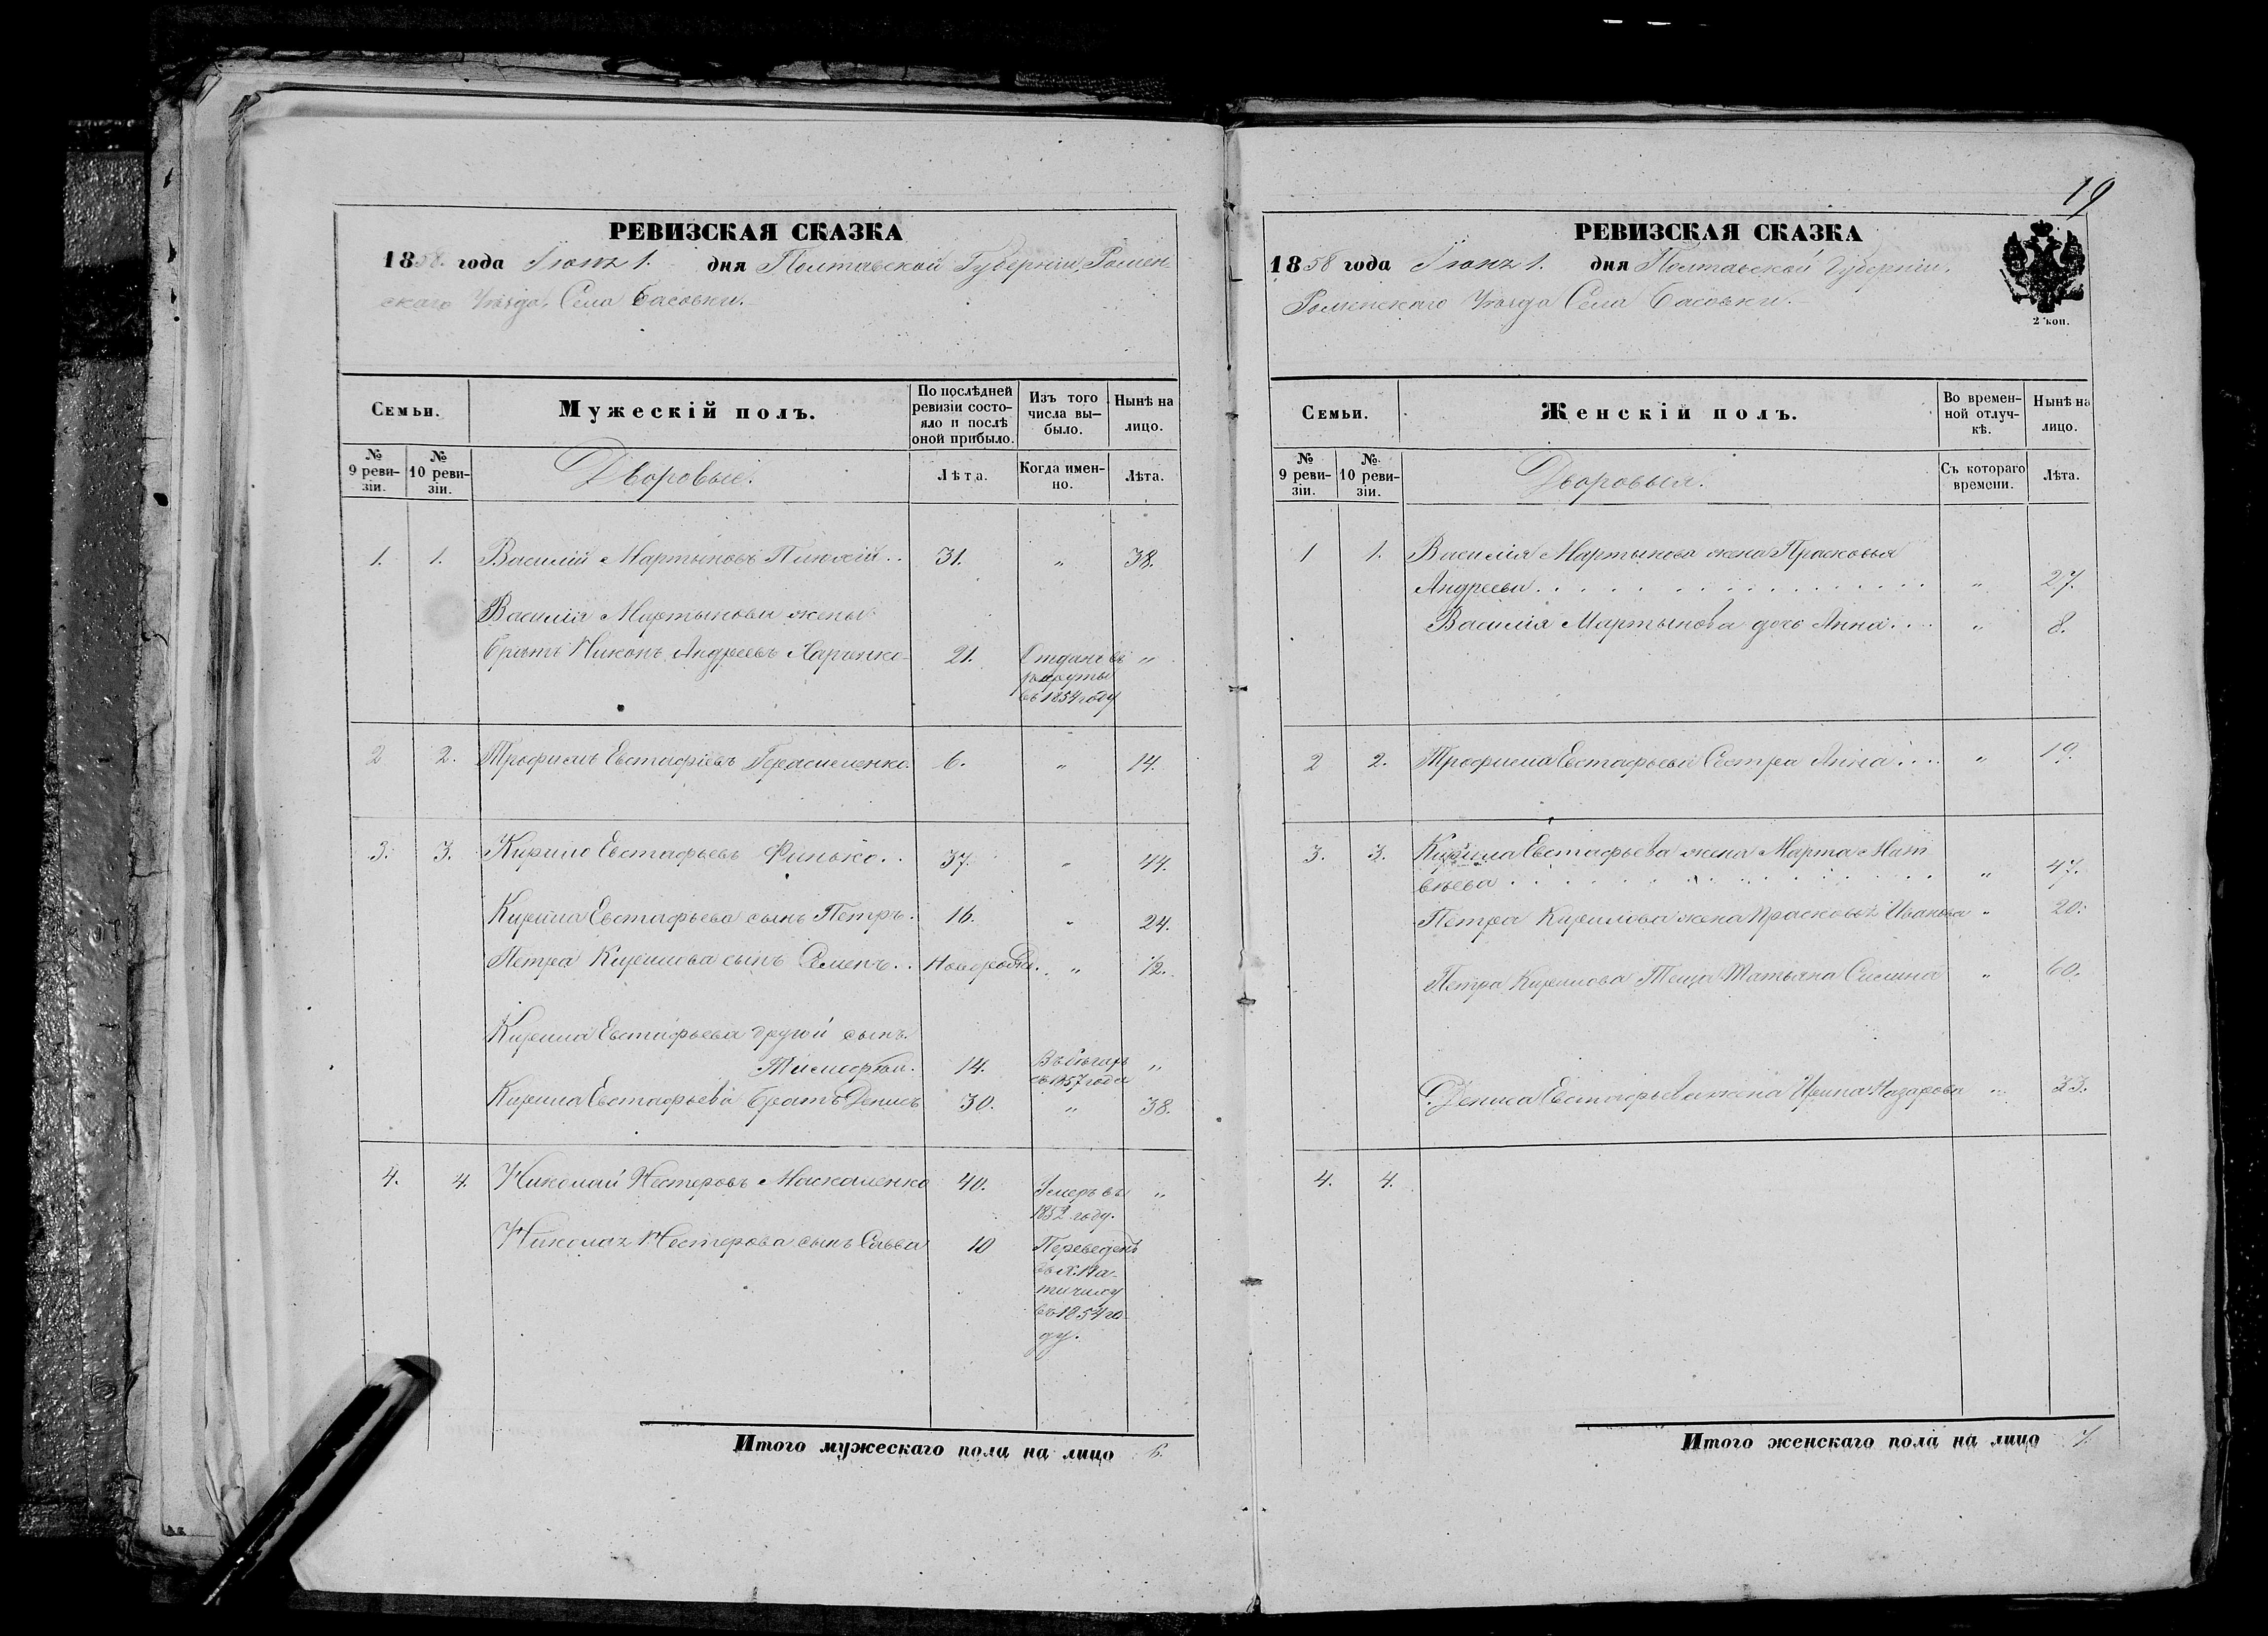 19
РЕВИЗСКАЯ СКАЗКА
1858. года Іюня 1. дня Полтавской Губерніи, Ромен-
скаго Уѣзда, Села Басовки.
Семьи.
Мужескій полъ.
По послѣдней ревизіи состо-яло и послѣ оной прибыло.
Изъ того числа вы-было.
Нынѣ на лицо.
№ 9 реви-зіи.
№ 10 реви-зіи.
Дворовые.
Лѣта.
Когда имен-но.
Лѣта.
1. 1. Василій Мартыновъ .. 31. „ 38.
Василія Мартынова жены
братъ Никонъ Андреевъ Харченко 21. Отданъ въ „
рекруты
въ 1854 году
2 2. Трофимъ Евстафіевъ Герасименко. 6. „ 14.
3. 3. Кирило Евстафьевъ Финько.. 37. „ 44.
Кирила Евстафьева сынъ Петръ. 16. „ 24.
Петра Кирилова сынъ Семенъ.. Новорожд. „ 1/2.
Кирила Евстафьева другой сынъ
Тимофей. 14. Въ бѣгахъ „
съ 1857 года
Кирила Евстафьева братъ Денисъ 30. „ 38.
4. 4. Николай Нестеровъ Маскаленко 40. Умеръ въ „
1852 году.
Николая Нестерова сынъ Савва 10 Переведенъ
въ х.
въ 1854 го-
ду.
Итого мужескаго пола на лицо 6.
РЕВИЗСКАЯ СКАЗКА
1858 года Іюня 1. дня Полтавской Губерніи,
Роменскаго Уѣзда Села Басовки.
2 коп.
Семьи.
Женскій полъ.
Во времен-ной отлуч-кѣ.
Нынѣ на лицо.
№ 9 реви-зіи.
№ 10 реви-зіи.
Дворовыя.
Съ котораго времени.
Лѣта.
1 1. Василія Мартынова жена Прасковья
Андреева . . . . „ 27.
Василія Мартынова дочь Анна... „ 8.
2 2. Трофима Евстафьева Сестра Анна... „ 19.
3. 3. Кирила Евстафьева жена Марта Мат
вѣева . . . . „ 47.
Петра Кирилова жена Прасковья Иванова „ 20.
Петра Кирилова Теща Татьяна Сисина „ 60.
Дениса Евстафьева жена Ирина Назарова „ 33.
4. 4.
Итого женскаго пола на лицо 7.